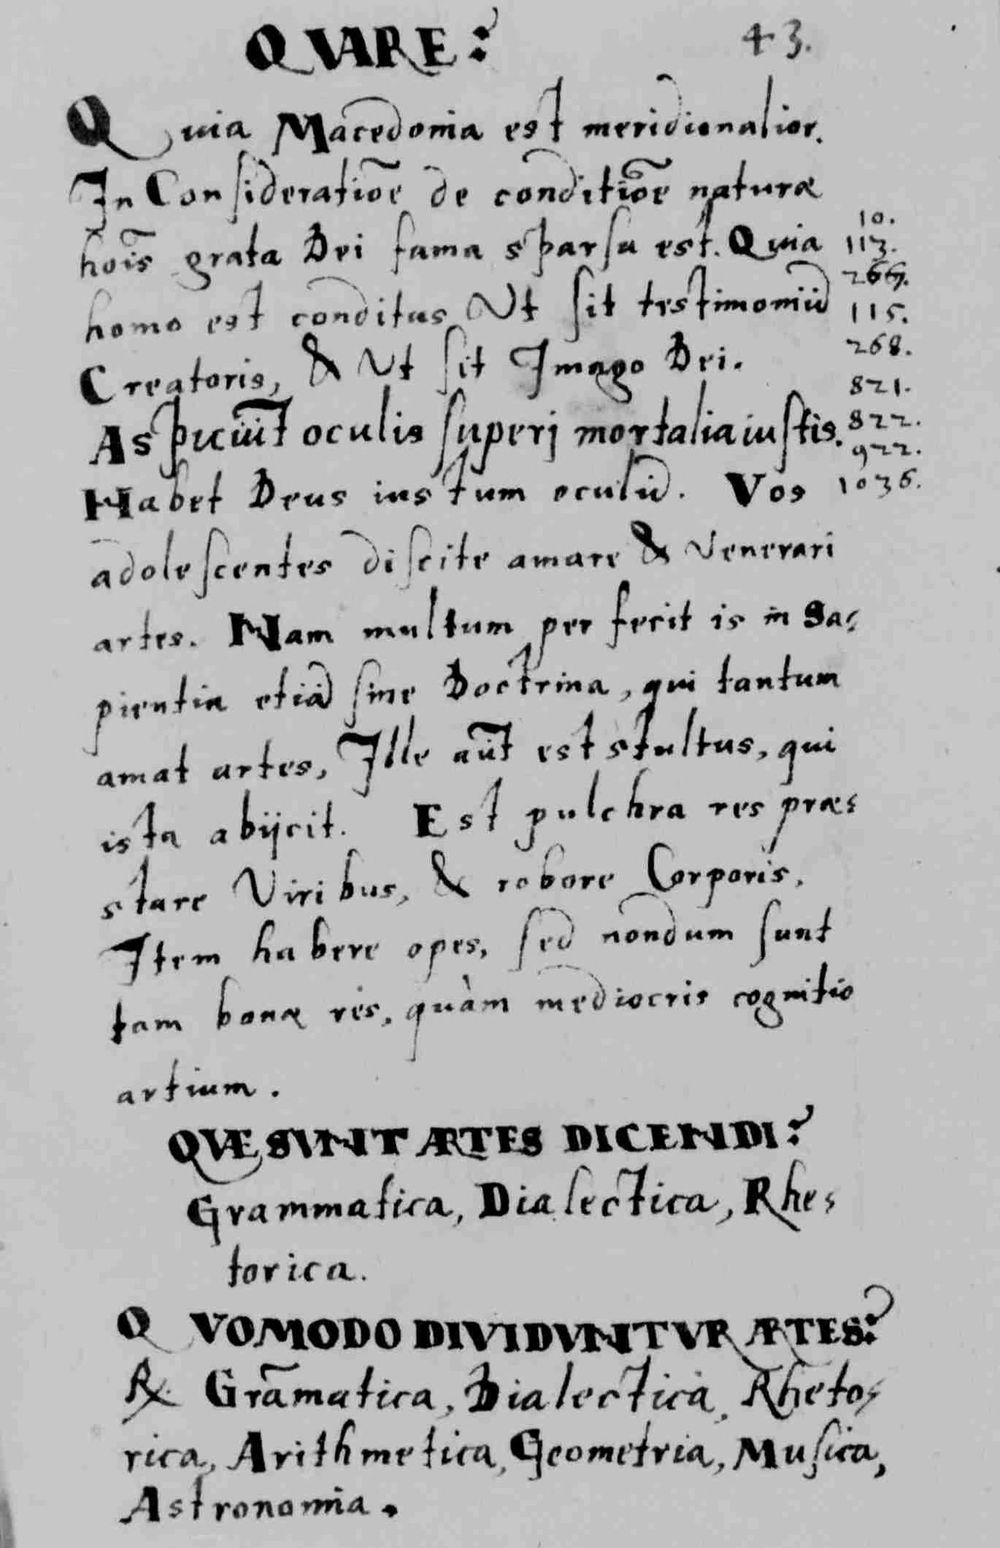 QVARE? 43.
Quia Macedonia est meridionalior.
In Consideratiōe de conditiōe naturæ
hoīs grata Dei fama sparsa est. Quia
10.
113.
266.
homo est conditus Vt sit testimoniū
115.
Creatoris, & Vt sit Imago Dei.
268.
821.
Aspiciūt oculis superi mortalia iustis.
822.
922.
Habet Deus iustum oculū. Vos
1036.
adolescentes discite amare & venerari
artes. Nam multum perfecit is in Sa-
pientia etiā sine Doctrina, qui tantum
amat artes, Ille aūt est stultus, qui
ista abijcit. Est pulchra res præ-
stare Viribus, & robore Corporis,
Item habere opes, sed nondum sunt
tam bonæ res, quàm mediocris cognitio
artium.
QVÆ SVNT ARTES DICENDI?
Grammatica, Dialectica, Rhe-
torica.
QVOMODO DIVIDVNTVR ARTES?
℞. Grāmatica, Dialectica, Rheto-
rica, Arithmetica, Geometria, Musica,
Astronomia.